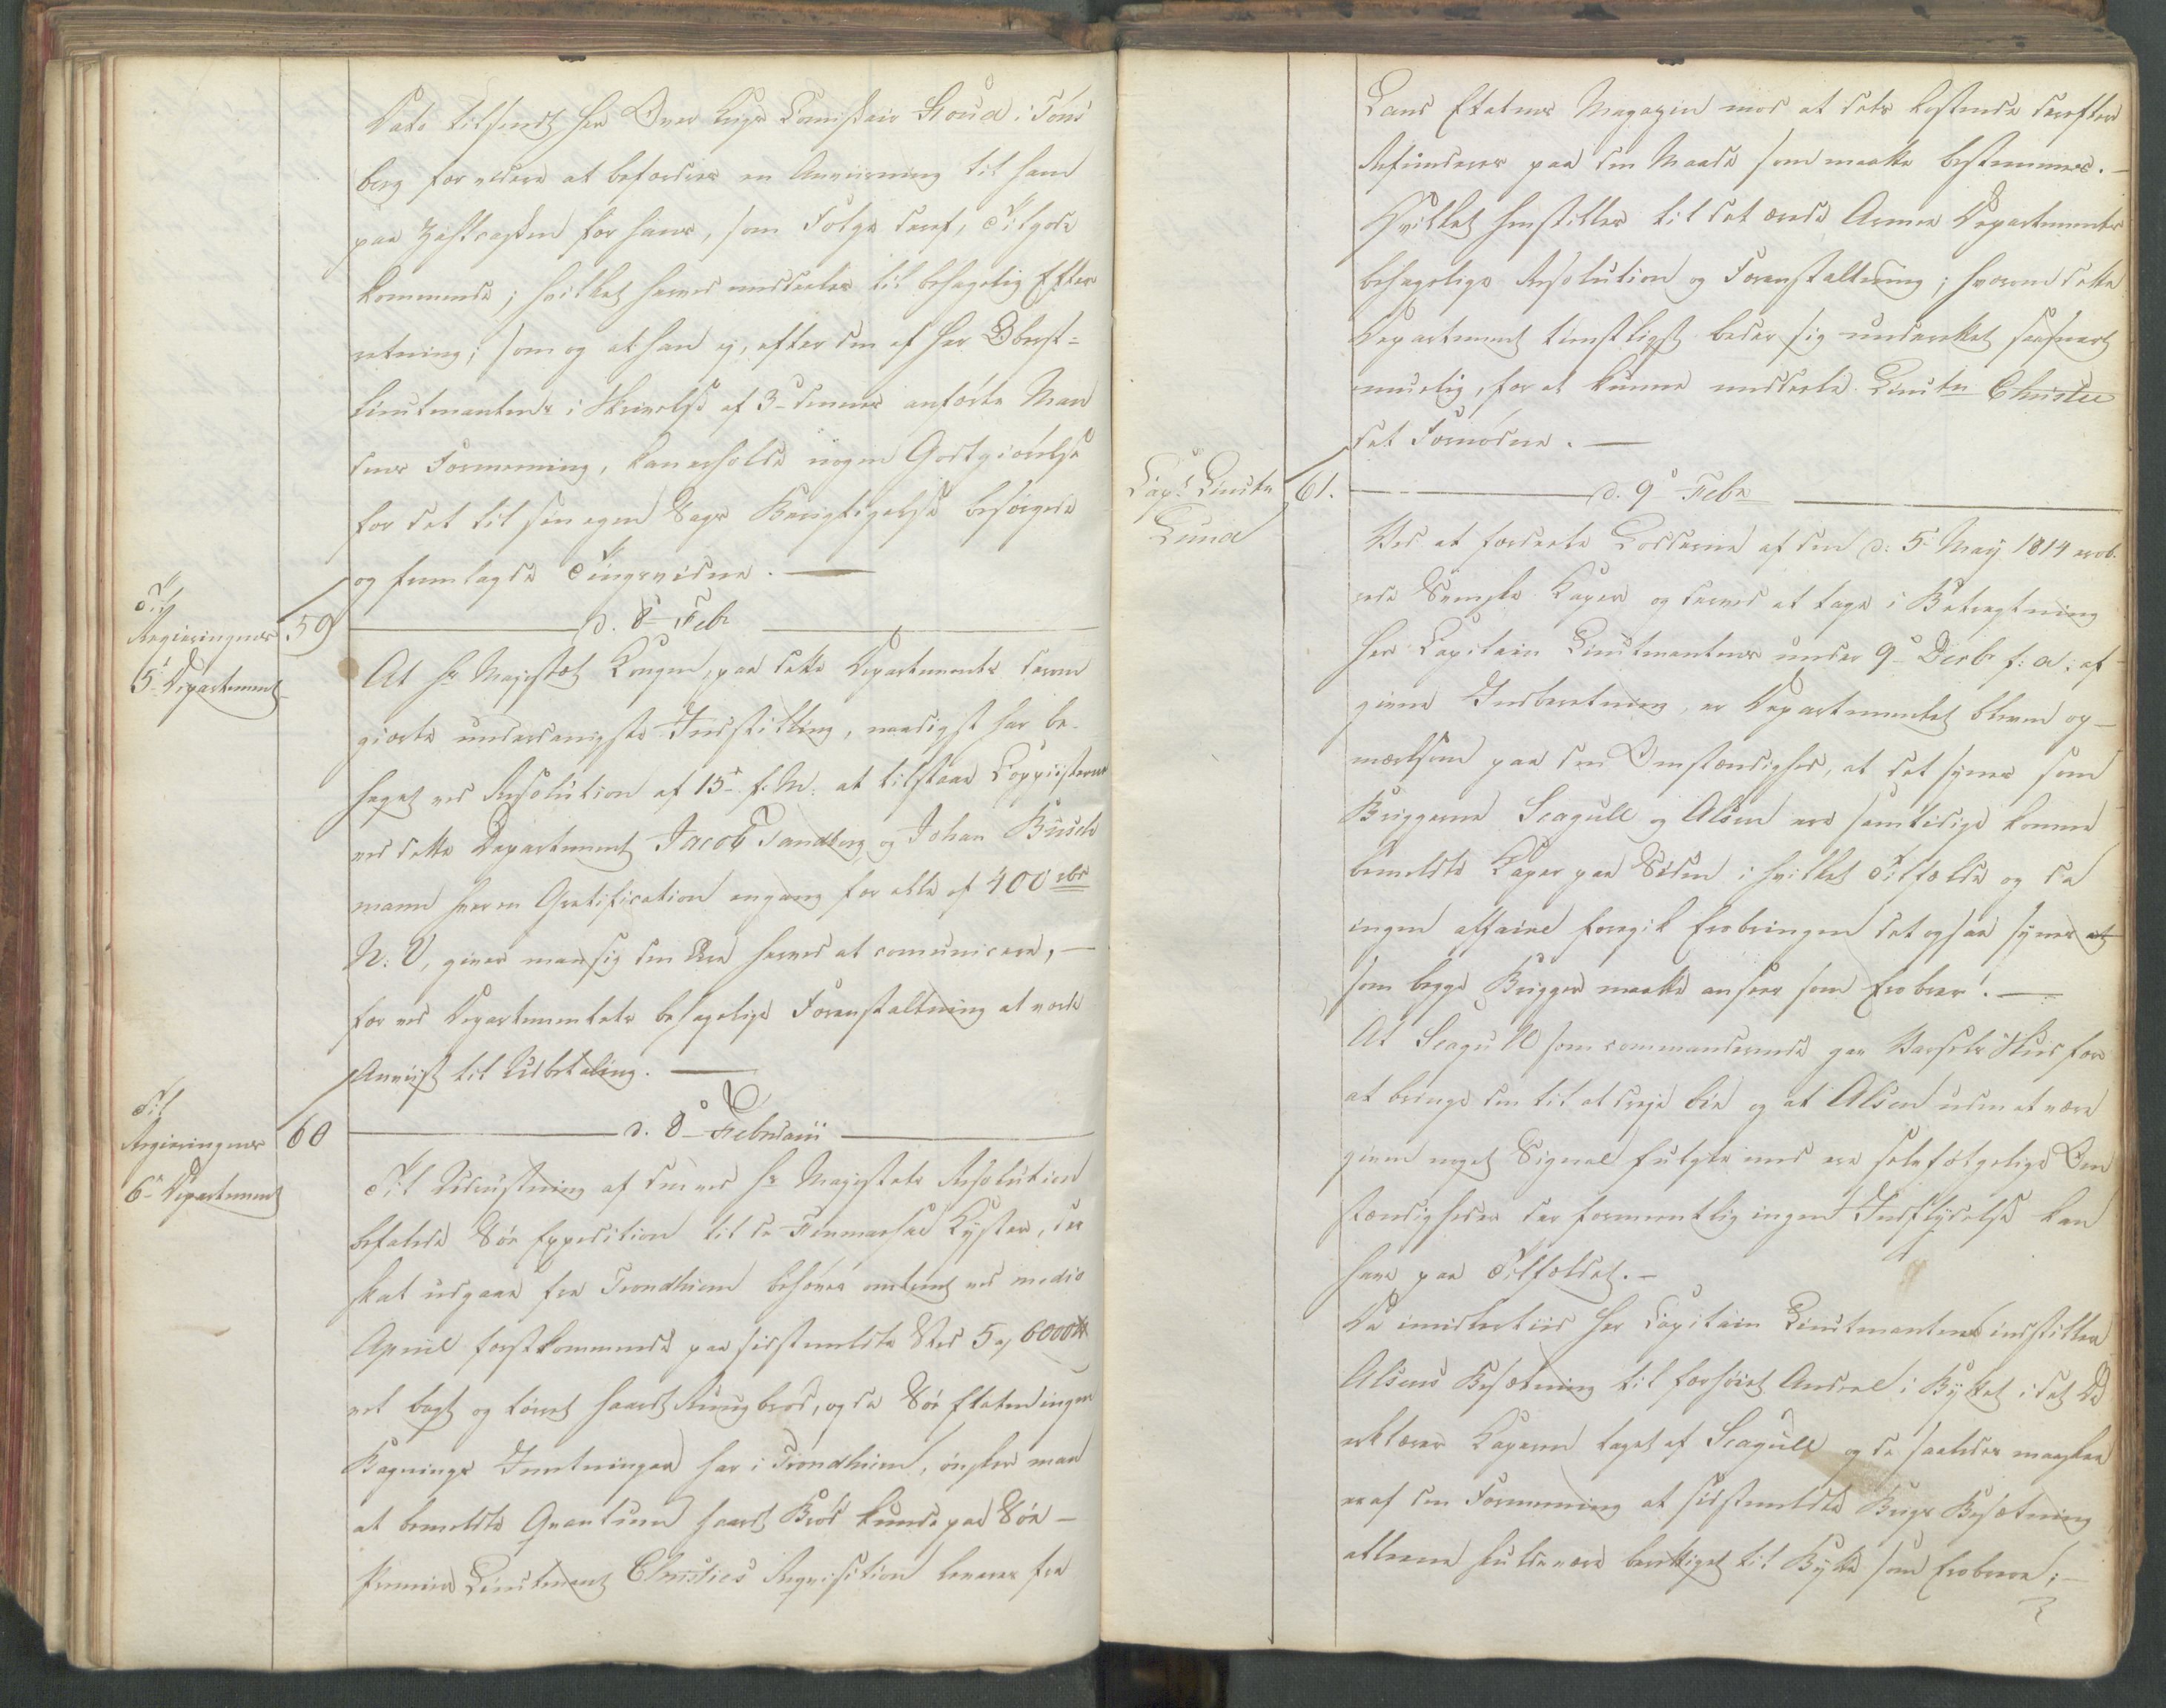 Dato tilsendt Hr Over Krigs Comissair Houd i Töns
berg for videre at befordres en Anviisning til ham
paa Zahlcassen for hans, som Følge deraf, Tilgode
kommende; hvilket herved meddeeles til behagelig Efter
retning; som og at han ej, efter den af Hr Oberst=
lieutenanten i Skrivelse af 3 dennes anförte Man
dens Formening, kan erholde nogen Godtgiörelse
for det til sin egen Sags Berigtigelse besörgede
og fremlagde Tingsvidne. —
Til
Regieringens
5 Departement
59
d. 8 Febr
At Hs Majestæt Kongen, paa dette Departements derom
giorte underdanigste Indstilling, naadigst har be-
haget ved Resolution af 15 f. M. at tilstaae Coppiisterne
ved dette Departement Jacob Sandberg og Johan Busch
mann hver en Gratification engang for alle af 400 rbd
N. V, giver man sig den Ære herved at comunicere, —
for ved Departementets behagelige Foranstaltning at vorde
Anviist til Udbetaling. —
Til
Regieringens
6 Departement
60
d. 8 Februarii
Til Udrustning af den ved Hs Majestæts Resolution
befalede Söe Expedition til de Finmarkske Kyster, der
skal udgaae fra Trondhiem behöves omtrent ved medio
Apriil förstkommende paa sidstmeldte Sted 5 a 6000 ℔
vel bagt og törret haardt Rugbröd, og da Söe Etaten ingen
Bagnings Indretninger har i Trondhiem, önsker man
at bemeldte Qvantum haardt Bröd kunde paa Söe —
Premier Lieutenant Christies Reqvisition leveres fra
Land Etatens Magazin mod at dets Kostende derefter
Refunderes paa den Maade som maatte bestemmes. —
Hvilket henstilles til det ærede Armee Departements
behagelige Resolution og Foranstaltning; hvorom dette
Departement tienstligst beder sig underrettet saasnart
muelig, for at kunne meddeele Lieutn Christie
det Fornödne. —
Capt Lieutn
Lund
61.
d. 9 Febr
Ved at fordeele Lodderne af den d: 5 Maij 1814 erob-
rede Svenske Kaper og derved at tage i Betragtning
Herr Capitain Lieutenantens under 9 Decbr f: a: af-
givne Indberetning, er Departementet bleven op-
mærksom paa den Omstændighed, at det synes som
Briggerne Seagull og Alsen ere samtidige komne
bemeldte Kaper paa Siden i hvilket Tilfælde og da
ingen affaire foregik Erobringen det ogsaa synes at
som begge Brigger maatte ansees som Erobrer. —
At Seagull som commanderende gav Varsels Skud for
at bringe den til at dreje bie og at Alsen uden at være
given noget Signal fulgte med ere selvfölgelige Om
stændigheder der formeentlig ingen Indflydelse kan
have paa Tilfældet. —
Da imidlertiid Hr Capitain Lieutenanten indstiller
Alsens Besætning til forhöiet Andeel i Byttet i det De
erklærer Kaperen taget af Seagull og de saaledes maaskee
er af den Formening at sidstmeldte Brigs Besætning
alleene skulde være berettiget til Bytte som Erobrere; —